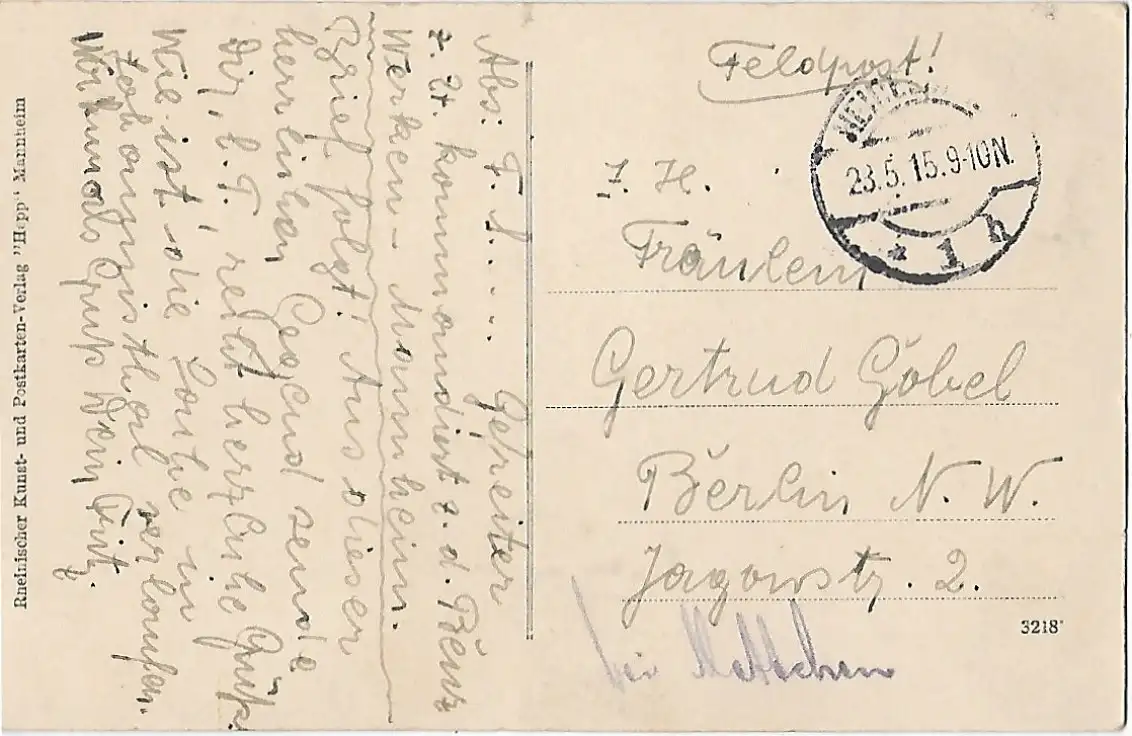 Feldpost!
23.5.15.9-10N.
* 1 h
J. H.
Fräulein
Gertrud Göbel
Berlin N. W.
Jagowstr. 2.
bei
3218
Abs: F. S..... Gefreiter
z. Zt. kommandiert z. d. Benz
Werken - Mannheim.
Brief folgt! Aus dieser
herrlichen Gegend sende
Dir, l. T., recht herzliche Grüße.
Wie ist die Sache in
verlaufen.
Gruß Dein Fritz.
Rheinischer Kunst- und Postkarten-Verlag "Hepp" Mannheim